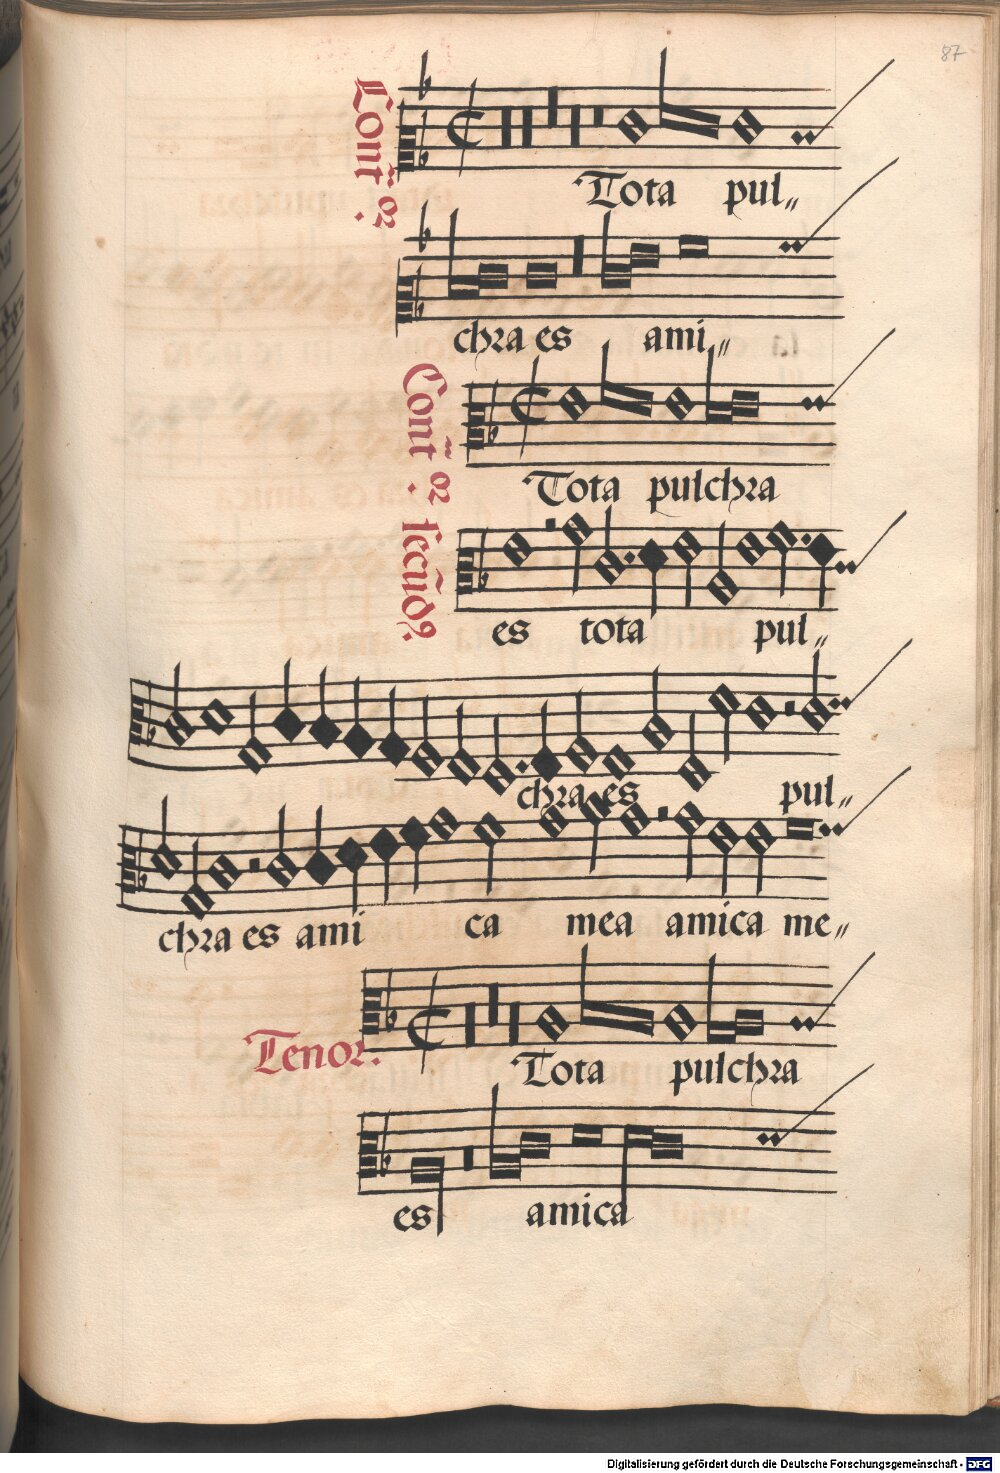 87
Contr. or.
Tota pul„
chra es ami„
Cont. or. secūdꝰ.
Tota pulchra
es tota pul„
chra es pul„
chra es ami ca mea amica me„
Tenor.
Tota pulchra
es amica
Digitalisierung gefördert durch die Deutsche Forschungsgemeinschaft - DFG